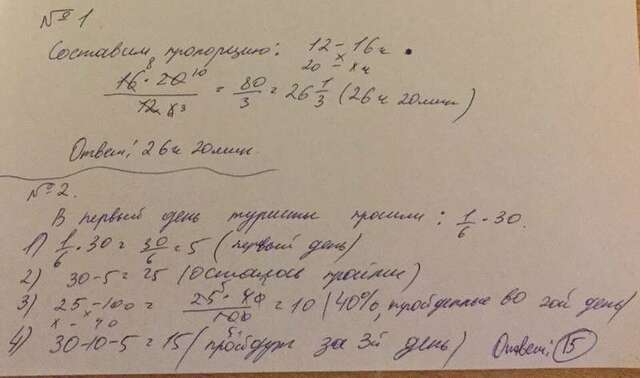 № 1
Составим пропорцию: 12 – 16ч
x
20 – xч
8 10
16 · 20 / 12 6 3 = 80/3 = 26 1/3 (26ч 20мин)
Ответ: 26ч 20мин.
№ 2.
В первый день туристы прошли: 1/6 · 30.
1) 1/6 · 30 = 30/6 = 5 (первый день)
2) 30-5 = 25 (осталось пройти)
3) 25 – 100 = 25 · 40 / 100 = 10 (40%, пройденные во 2ой день)
x – 40
4) 30-10-5 = 15 (пройдут за 3й день) Ответ: 15